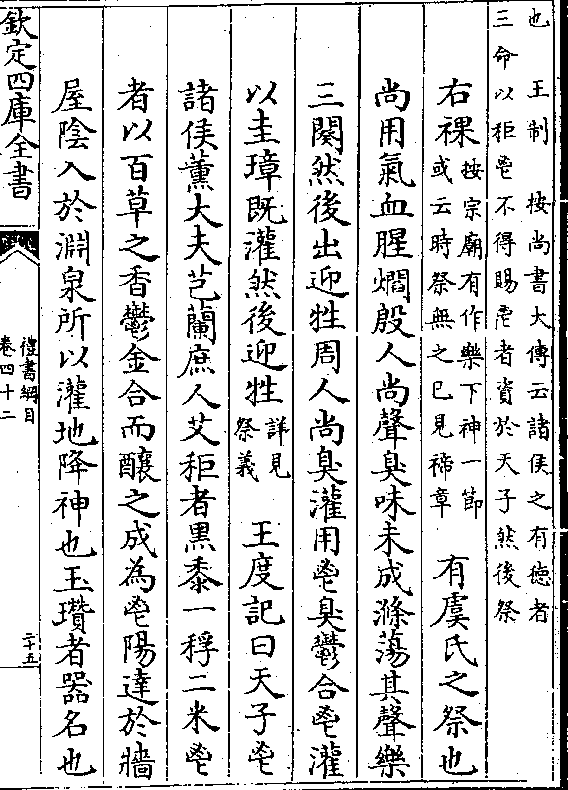 也　王制　按尚書大傳云諸侯之有德者
三命以秬鬯不得賜鬯者資於天子然後祭
右祼按宗廟有作樂下神一節或云時祭無之已見禘章　有虞氏之祭也
尚用氣血腥爓殷人尚聲臭味未成滌蕩其聲樂
三闋然後出迎牲周人尚臭灌用鬯臭鬱合鬯灌
以圭璋既灌然後迎牲詳見祭義　王度記曰天子鬯
諸侯薰大夫芑蘭庶人艾秬者黑黍一稃二米鬯
者以百草之香鬱金合而釀之成為鬯陽達於牆
屋陰入於淵泉所以灌地降神也玉瓚者器名也
欽定四庫全書
禮書綱目
卷四十二
二十五